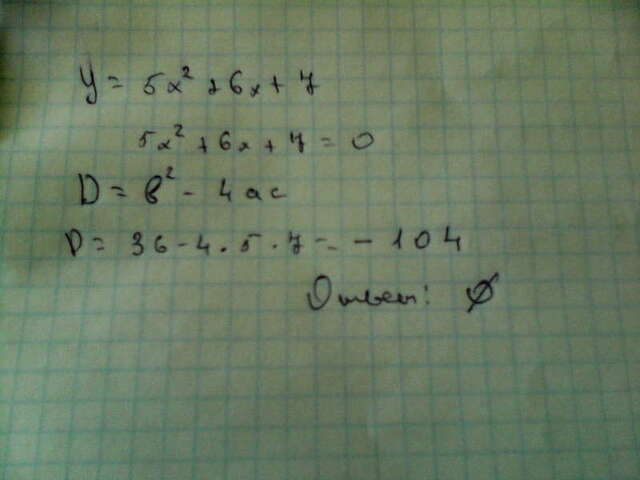 y = 5x² + 6x + 7
5x² + 6x + 7 = 0
D = b² - 4ac
D = 36 - 4 · 5 · 7 = -104
Ответ: ∅